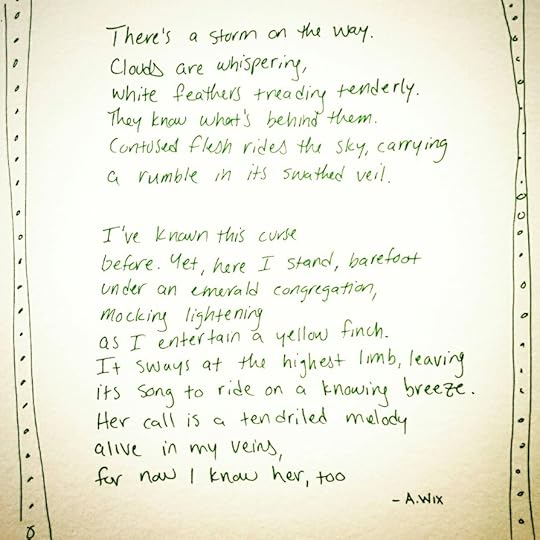 There's a storm on the way.
Clouds are whispering,
white feathers treading tenderly.
They know what's behind them.
Contused flesh rides the sky, carrying
a rumble in its swathed veil.
I've known this curse
before. Yet, here I stand, barefoot
under an emerald congregation,
mocking lightening
as I entertain a yellow finch.
It sways at the highest limb, leaving
its song to ride on a knowing breeze.
Her call is a tendriled melody
alive in my veins,
for now I know her, too
- A.Wix